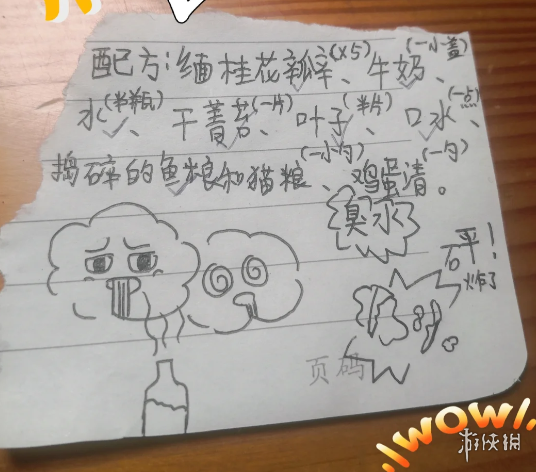 配方:缅桂花瓣(x5)、牛奶(一小盖)、
水(半瓶)、干菁苔(一片)、叶子(半片)、口水(一点)、
捣碎的鱼粮和猫粮(一小勺)、鸡蛋清(一勺)。
臭水
砰!
炸了
页码
WOW!
游侠网